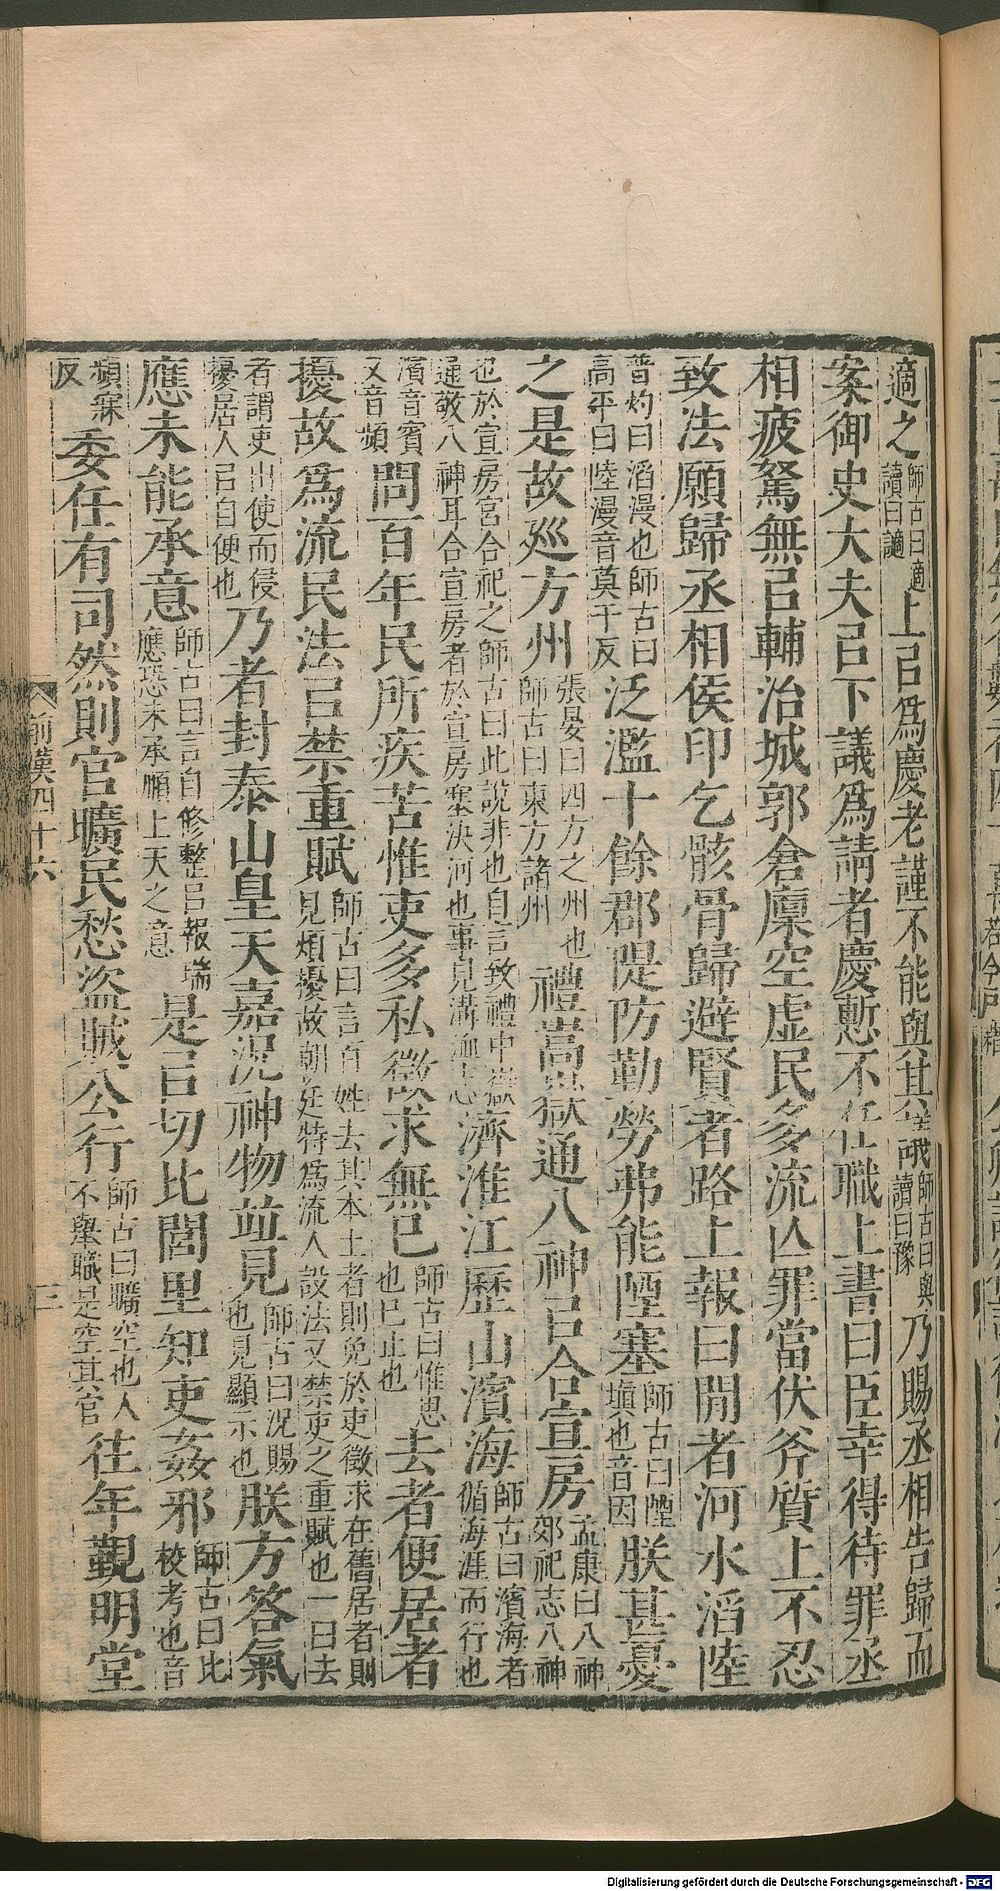 適之師古曰適讀曰讁上㠯爲慶老謹不能與其議師古曰與讀曰豫乃賜丞相告歸而
案御史大夫㠯下議爲請者慶慙不任職上書曰臣幸得待罪丞
相疲駑無㠯輔治城郭倉廩空虚民多流亾罪當伏斧質上不忍
致法願歸丞相侯印乞骸骨歸避賢者路上報曰閒者河水滔陸
晉灼曰滔漫也師古曰高平曰陸漫音莫干反泛濫十餘郡隄防勤勞弗能陻塞師古曰陻塡也音因朕甚憂
之是故廵方州張晏曰四方之州也師古曰東方諸州禮嵩嶽通八神㠯合宣房孟康曰八神郊祀志八神
也於宣房宮合祀之師古曰此説非也自言致禮中嶽通敬八神耳合宣房者於宣房塞決河也事見溝洫志濟淮江歷山濱海師古曰濱海者循海涯而行也
濱音賓又音頻問百年民所疾苦惟吏多私徵求無已師古曰惟思也已止也去者便居者
擾故爲流民法㠯禁重賦師古曰言百姓去其本土者則免於吏徵求在舊居者則見煩擾故朝廷特爲流人設法又禁吏之重賦也一曰去
者謂吏出使而侵擾居人㠯自便也乃者封泰山皇天嘉况神物並見師古曰况賜也見顯示也朕方答氣
應未能承意師古曰言自修整㠯報瑞應恐未承順上天之意是㠯切比閭里知吏姦邪師古曰比校考也音
頻寐反委任有司然則官曠民愁盜賊公行師古曰曠空也人不舉職是空其官往年覲明堂
前漢四十六 三
Digitalisierung gefördert durch die Deutsche Forschungsgemeinschaft - DFG